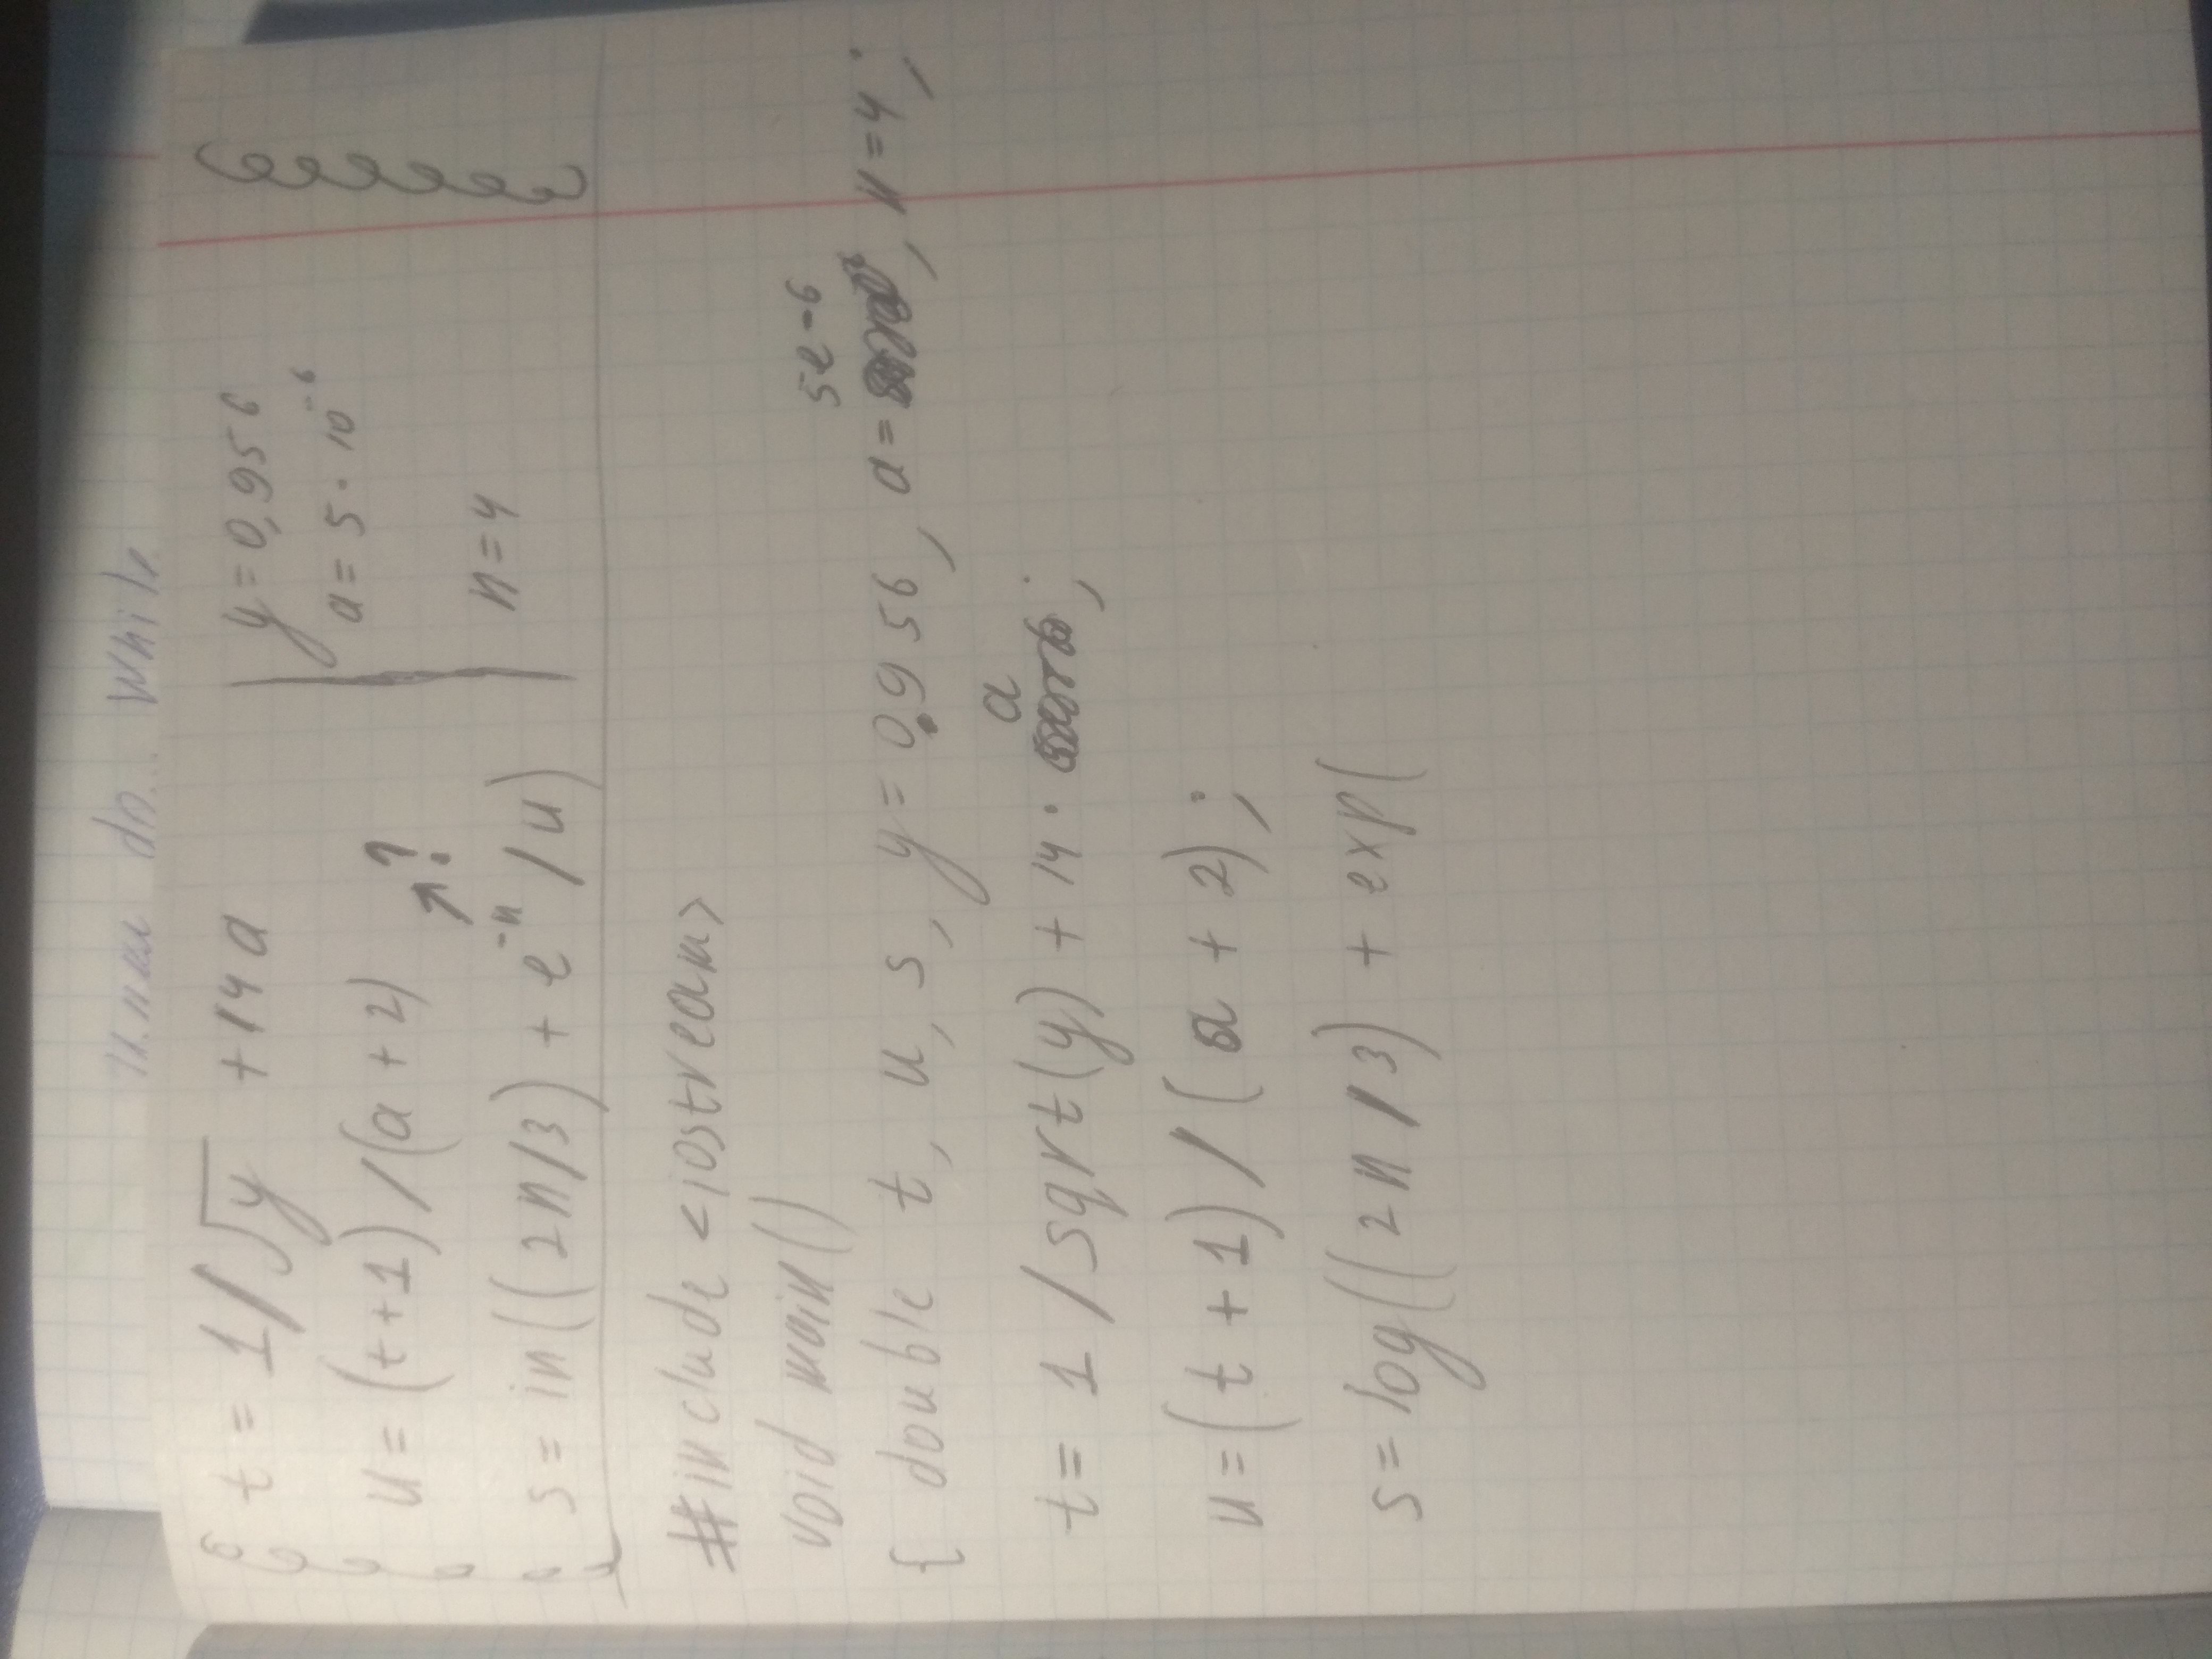 do... while
t = 1/√y + 14a | y = 0,956
u = (t+1)/(a+2) | a = 5 · 10⁻⁶
↗?
s = in((2n/3) + e⁻ⁿ/u) | n = 4
#include <iostream>
void main()
{ double t, u, s, y = 0.956, a = 5e-6, n = 4;
t = 1/sqrt(y) + 14 · a;
u = (t+1)/(a+2);
s = log((2n/3) + exp(